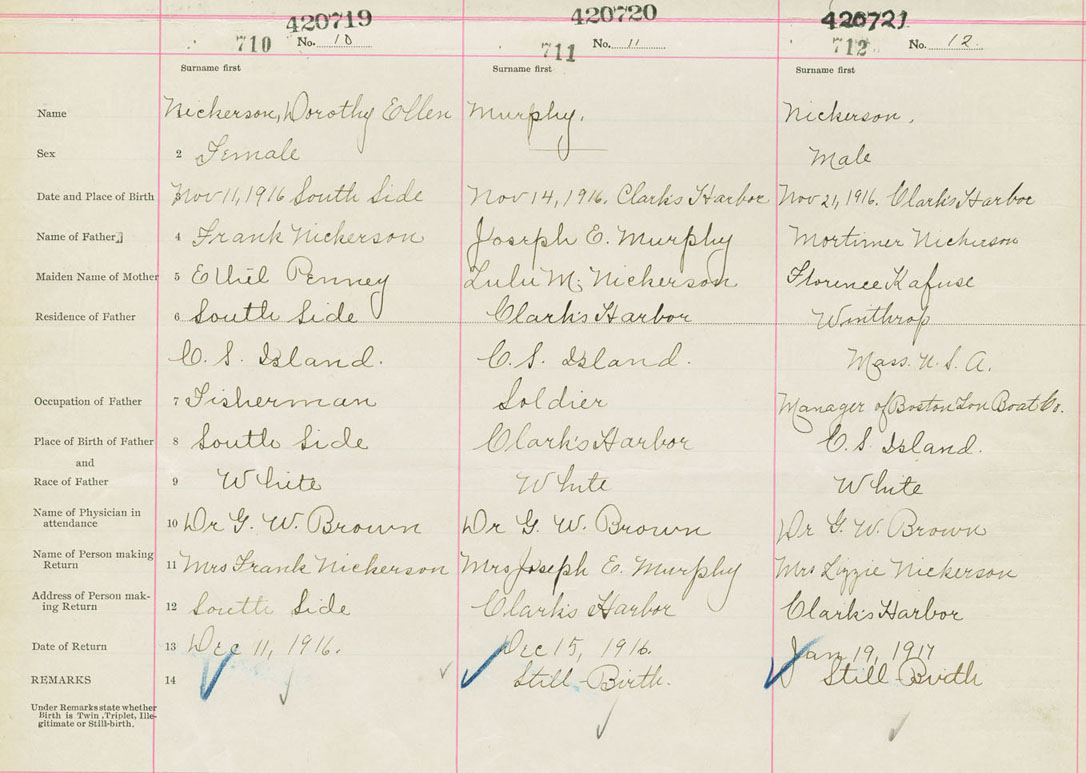 420719 420720 420721
710 No. 10 711 No. 11 712 No. 12
Surname first Surname first Surname first
Name Nickerson, Dorothy Ellen Murphy. Nickerson.
Sex 2 Female Male
Date and Place of Birth Nov 11, 1916 South Side Nov 14, 1916. Clark's Harbor Nov 21, 1916. Clark's Harbor
Name of Father 4 Frank Nickerson Joseph E. Murphy Mortimer Nickerson
Maiden Name of Mother 5 Ethil Penney Lulu M. Nickerson Florence Kafuse
Residence of Father 6 South Side Clark's Harbor Winthrop
C. S. Island. C. S. Island. Mass. U. S. A.
Occupation of Father 7 Fisherman Soldier Manager of Boston Boat Co.
Place of Birth of Father 8 South Side Clark's Harbor C. S. Island.
and
Race of Father 9 White White White
Name of Physician in
attendance 10 Dr G. W. Brown Dr G. W. Brown Dr G. W. Brown
Name of Person making
Return 11 Mrs Frank Nickerson Mrs Joseph E. Murphy Mrs Lizzie Nickerson
Address of Person mak-
ing Return 12 South Side Clark's Harbor Clark's Harbor
Date of Return 13 Dec 11, 1916. Dec 15, 1916. Jan 19, 1917
REMARKS 14 Still-Birth. Still-Birth
Under Remarks state whether
Birth is Twin, Triplet, Ille-
gitimate or Still-birth.